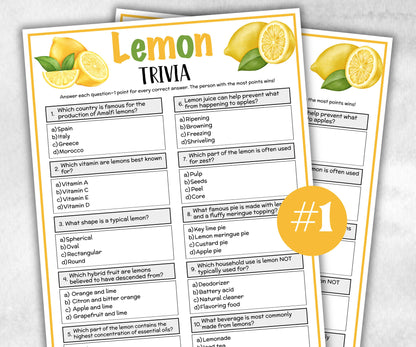 Lemon
TRIVIA
Answer each question–1 point for every correct answer. The person with the most points wins!
1. Which country is famous for the
production of Amalfi lemons?
a)Spain
b)Italy
c)Greece
d)Morocco
2. Which vitamin are lemons best known
for?
a)Vitamin A
b)Vitamin C
c)Vitamin E
d)Vitamin D
3. What shape is a typical lemon?
a)Spherical
b)Oval
c)Rectangular
d)Round
4. Which hybrid fruit are lemons
believed to have descended from?
a) Orange and lime
b) Citron and bitter orange
c) Apple and lime
d) Grapefruit and lime
5. Which part of the lemon contains the
highest concentration of essential oils?
6. Lemon juice can help prevent what
from happening to apples?
a)Ripening
b)Browning
c)Freezing
d)Shriveling
7. Which part of the lemon is often used
for zest?
a)Pulp
b)Seeds
c)Peel
d)Core
8. What famous pie is made with lemon
and a fluffy meringue topping?
a)Key lime pie
b)Lemon meringue pie
c)Custard pie
d)Apple pie
9. Which household use is lemon NOT
typically used for?
a)Deodorizer
b)Battery acid
c)Natural cleaner
d)Flavoring food
10. What beverage is most commonly
made from lemons?
a)Lemonade
#1
the most points wins!
help prevent what
apples?
lemon is often used
made with lemon
topping?
is lemon NOT
most commonly